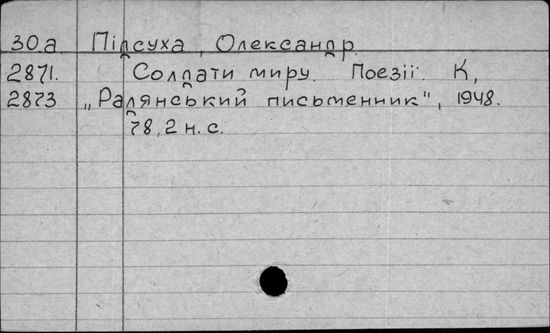 30.а. Підсуха, Олександр.
2871. Солдати миру. Поезії. К,
2873 „Радянський письменник", 1948.
78, 2 н. с.